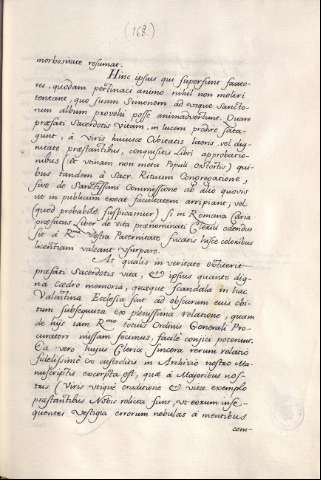 (168.)
morbo, mare resumat.
Hinc ipsius qui supersunt fauto-
res, quodam pertinaci animo nihil non moleri
tentant, quo suum Simonem ad usque Sancto-
rum album provehi posse animadvertunt. Quare
præfati Sacerdotis vitam, in lucem prodire sata-
gunt, à Viris huiusce Civitatis licera, vel dig-
nitate præstantibus, conquisitis Libri approbatio-
nibus (et utinam non metu Populi extortis) qui-
bus tandem à Sacr. Rituum Congregatione,
sive de Sanctissimi Commissione ab alio quovis
ut in publicum exeat facultatem arripiant, vel
(quod probabile suspicamur) si in Romana Curia
prefatus Liber de vita prænominati Clerici cudendus
sit à R.ma Vestra Paternitate fucatis husce coloribus
licentiam valeant usurpare.
At qualis in veritate obtiterit
præfati Sacerdotis vita, & ipsius quanto dig-
na cædro memoria, quæque scandala in hac
Valentina Ecclesia sint ad obscurum eius obi-
tum subsequuta ex plenissima relatione, quam
de hijs iam R.mo totius Ordinis Generali Pro-
curatori missam fecimus, facile conijci poterunt.
Ea vero hujus Cleria sincera rerum relatio
fidelissime ex asservatis in Archivio nostro Ma-
nuscriptis excerpta est, quæ à Majoribus nos-
tris (Viris utique eruditione & vitæ exemplo
præstantibus) Nobis relicta sunt, ut eorum inse-
quentes vestigia errorum nebulas à mentibus
com-